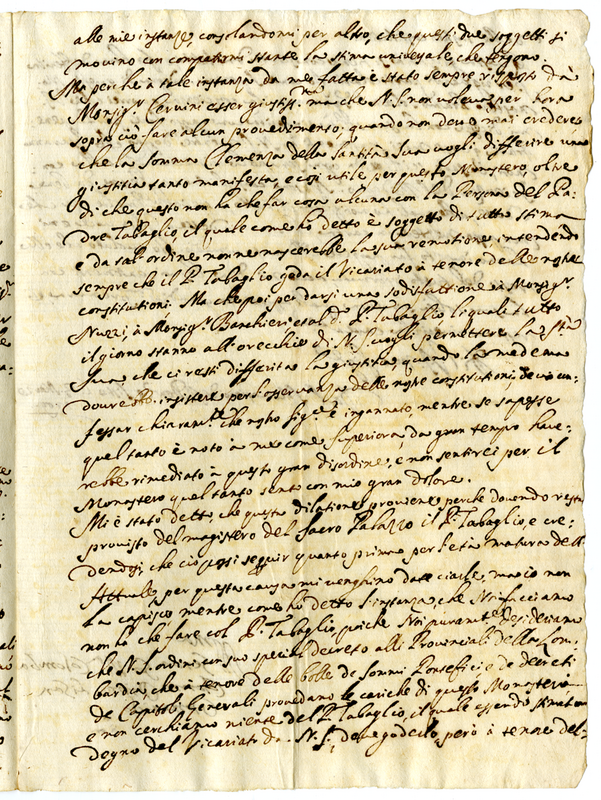 alle mie instanze, consolandomi per altro, che questi due soggetti si
movino con compatirmi stante la stima universale, che tengono.
Ma perche à tale instanza da me fatta è stato sempre risposto da
Monsig.r Cervini esser giustiss.ma ma che N. S. non voleva per hora
sopra ciò fare alcun provedimento; quando non devo mai credere
che la somma Clemenza della Santità Sua vogli differire una
giustitia tanto manifesta, e così utile per questo Monastero, oltre
di che questo non hà che far cosa alcuna con la Persona del Pa-
dre Tabaglio, il quale come hò detto è soggetto di tutta stima
e da tal ordine non ne nascerebbe la sua remotione, intendendo
sempre che il P. Tabaglio goda il Vicariato à tenore delle nostre
constitutioni. Ma che poi per darsi una sodisfattione à Monsig.r
Nuzzi, à Monsig.r Banchieri et al d.o P. Tabaglio li quali tutto
il giorno stanno all'orecchie di N. S. vogli permettere la S.tà
Sua, che ci resti differita la giustitia, quando la medema
dovrebbe insistere per l'osservanza delle nostre constitutioni, devo con-
fessar chiaram.te che nostro Sig.re è ingannato, mentre se sapesse
quel tanto è noto à me come Superiora, da gran tempo have-
rebbe rimediato à questo gran disordine, e non sentirei per il
Monastero quel tanto sento con mio gran dolore.
Mi è stato detto, che questa dilatione proviene, perche dovendo restar
provisto del magistero del Sacro Palazzo il P. Tabaglio, e cre-
dendosi che ciò possi seguir quanto prima per l'età matura dell'
Attuale, per questa causa mi venghino date ciarle, ma io non
la capisco, mentre come hò detto l'instanza, che Noi facciamo
non hà che fare col P. Tabaglio, poiche Noi puram.te desideriamo
che N. S. ordini con suo special decreto alli Provinciali della Lom-
bardia, che à tenore delle bolle de Sommi Pontefici e de decreti
de Capitoli Generali provedano le cariche di questo Monastero
e non cerchiamo niente del P. Tabaglio, il quale essendo stimato
degno del Vicariato da N. S., deve goderlo, però à tenore del-